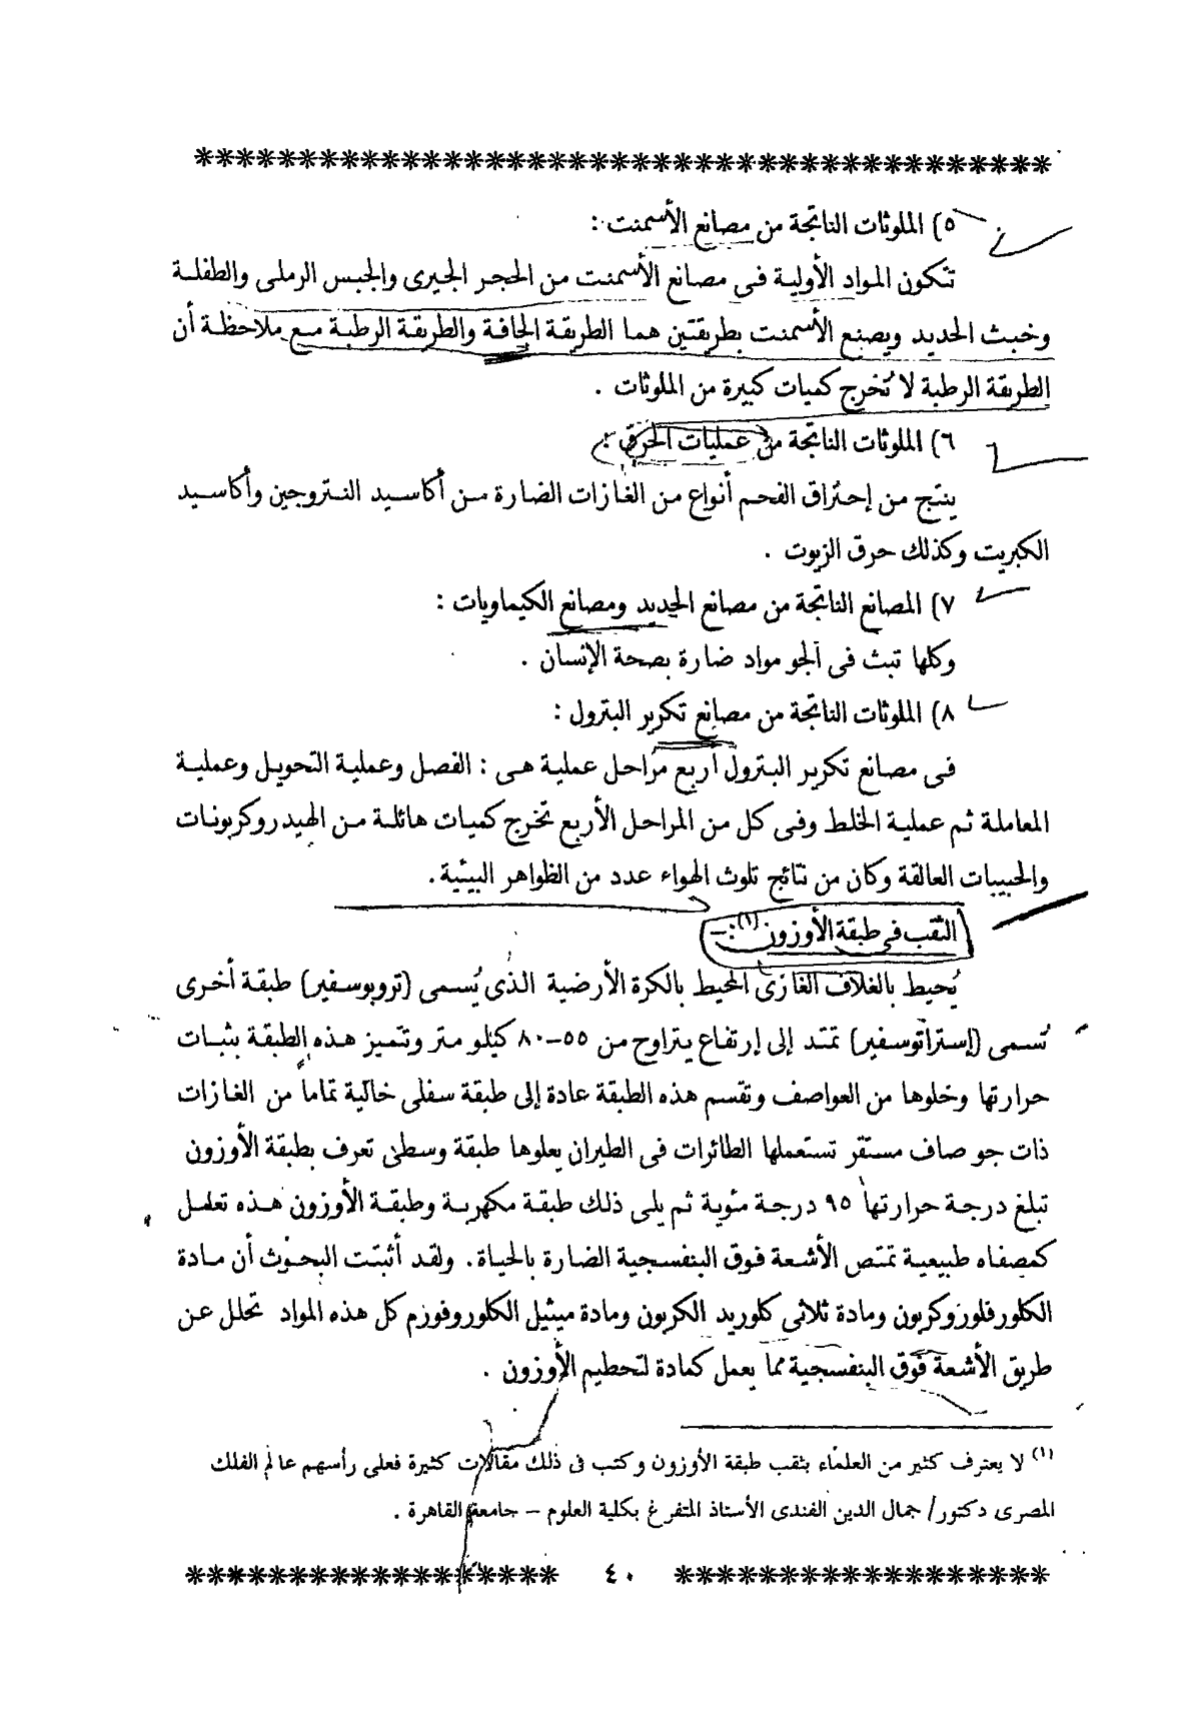 ٥) الملوثات الناتجة من مصانع الأسمنت :
تتكون المواد الأولية فى مصانع الأسمنت من الحجر الجيرى والجبس الرملى والطفلة
وخبث الحديد ويصنع الأسمنت بطريقتين هما الطريقة الجافة والطريقة الرطبة مع ملاحظة أن
الطريقة الرطبة لا تُخرج كميات كبيرة من الملوثات .
٦) الملوثات الناتجة من عمليات الحرق :
ينتج من إحتراق الفحم أنواع من الغازات الضارة من أكاسيد النتروجين وأكاسيد
الكبريت وكذلك حرق الزيوت .
٧) المصانع الناتجة من مصانع الحديد ومصانع الكيماويات :
وكلها تبث فى الجو مواد ضارة بصحة الإنسان .
٨) الملوثات الناتجة من مصانع تكرير البترول :
فى مصانع تكرير البترول أربع مراحل عملية هى : الفصل وعملية التحويل وعملية
المعاملة ثم عملية الخلط وفى كل من المراحل الأربع تخرج كميات هائلة من الهيدروكربونات
والحبيبات العالقة وكان من نتائج تلوث الهواء عدد من الظواهر البيئية .
الثقب فى طبقة الأوزون (١) :–
يُحيط بالغلاف الغازى المحيط بالكرة الأرضية الذى يُسمى (تروبوسفير) طبقة أخرى
تُسمى (إستراتوسفير) تمتد إلى إرتفاع يتراوح من ٥٥–٨٠ كيلو متر وتتميز هذه الطبقة بثبات
حرارتها وخلوها من العواصف وتقسم هذه الطبقة عادة إلى طبقة سفلى خالية تماماً من الغازات
ذات جو صاف مستقر تستعملها الطائرات فى الطيران يعلوها طبقة وسطى تعرف بطبقة الأوزون
تبلغ درجة حرارتها ٩٥ درجة مئوية ثم يلى ذلك طبقة مكهربة وطبقة الأوزون هذه تعمل
كمصفاه طبيعية تمتص الأشعة فوق البنفسجية الضارة بالحياة . ولقد أثبتت البحوث أن مادة
الكلورفلوزوكربون ومادة ثلاثى كلوريد الكربون ومادة ميثيل الكلوروفوزم كل هذه المواد تحلل عن
طريق الأشعة فوق البنفسجية مما يعمل كمادة لتحطيم الأوزون .
(١) لا يعترف كثير من العلماء بثقب طبقة الأوزون وكتب فى ذلك مقالات كثيرة فعلى رأسهم عالم الفلك
المصرى دكتور/ جمال الدين الفندى الأستاذ المتفرغ بكلية العلوم – جامعة القاهرة .
٤٠